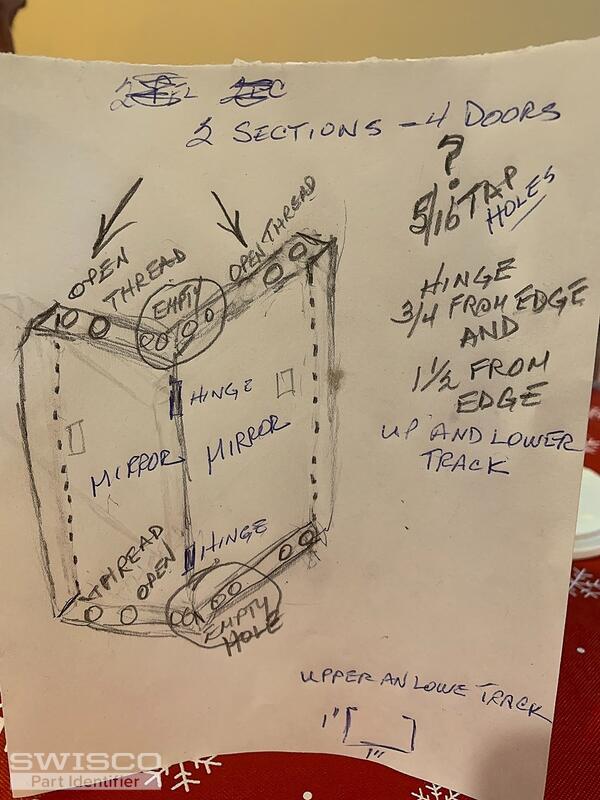 2 SECTIONS - 4 DOORS
?
5/16 TAP
HOLES
OPEN
THREAD
EMPTY
OPEN THREAD
HINGE
3/4 FROM EDGE
AND
1 1/2 FROM
EDGE
UP AND LOWER
TRACK
HINGE
MIRROR
MIRROR
HINGE
THREAD
OPEN
EMPTY
HOLE
UPPER AN LOWE TRACK
1"
1"
SWISCO
Part Identifier